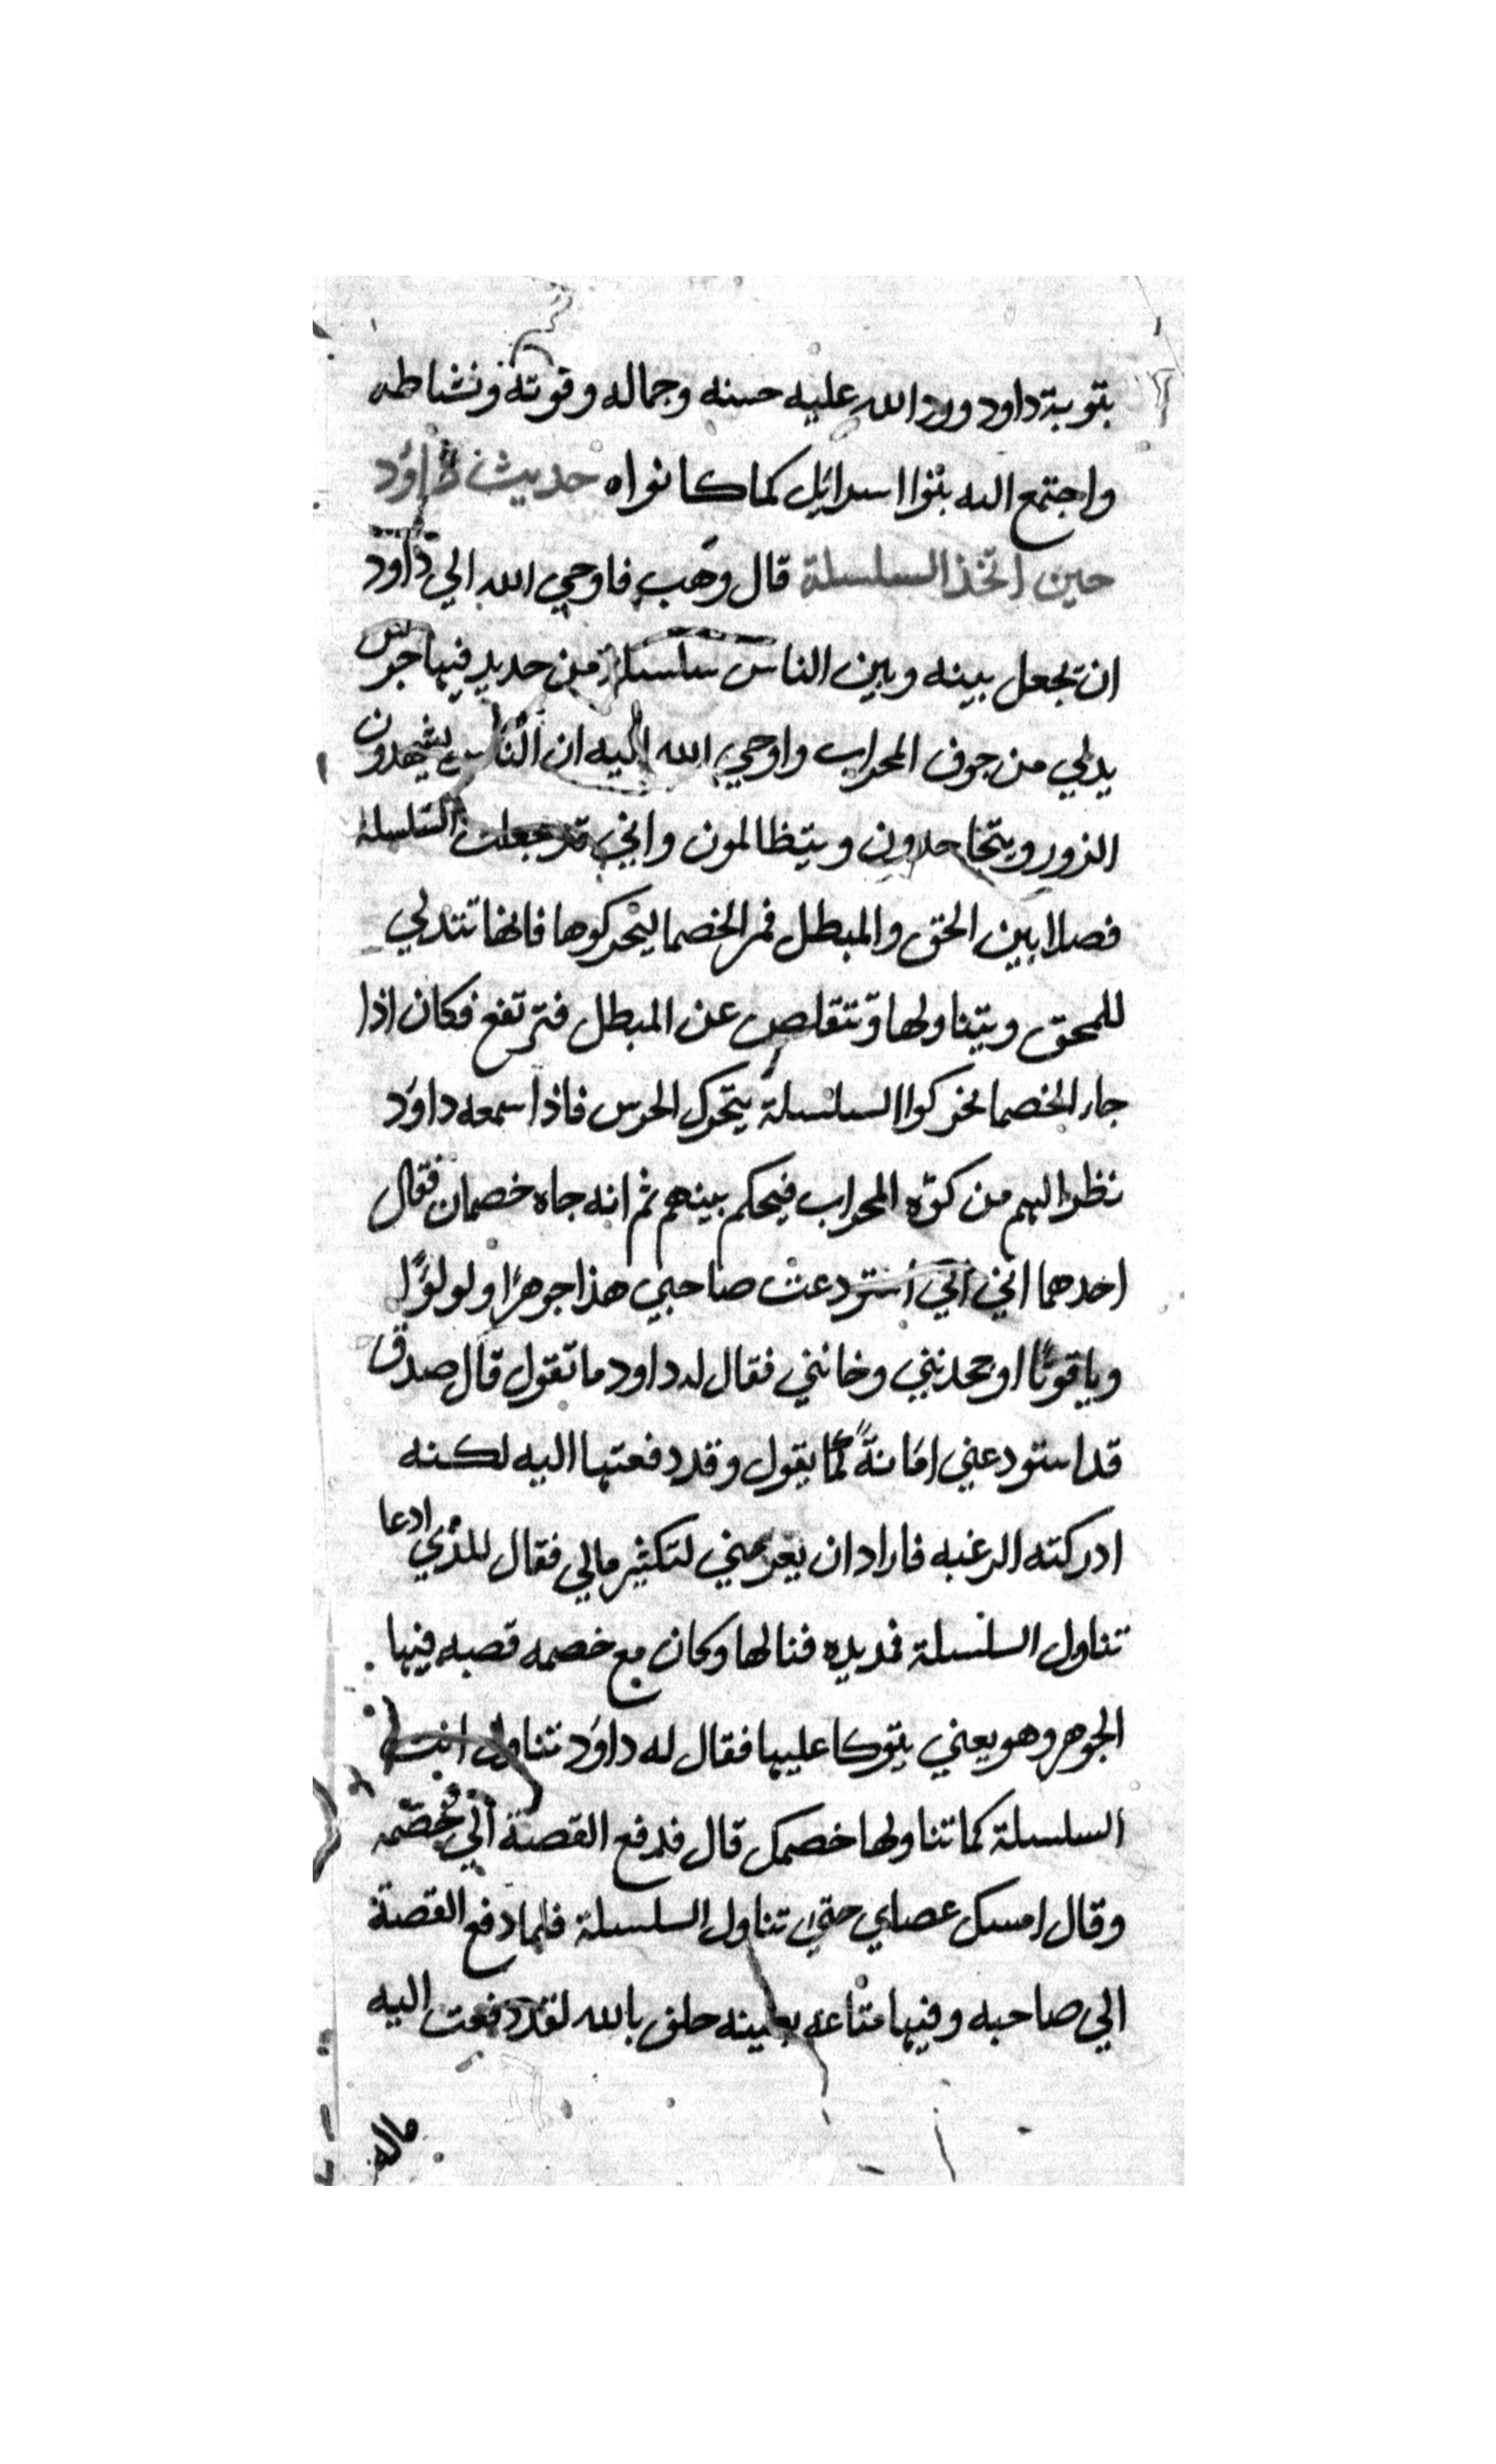 بتوبة داود ورد الله عليه حسنه وجماله وقوته ونشاطه
واجتمع اليه بنوا اسرائل كما كانوا ه حديث داوَد
حين اتخذ السلسلة قال وهَب فاوحي الله الي داوَد
ان تجعل بينه وبين الناس سلسلة من حديد فيها جرس
يدلي من جوف المحراب واوحي الله اليه ان النَّاس يشهدون
الزور ويتجاحدون ويتظالمون واني قد جعلت السلسلة
فصلا بين الحق والمبطل فمر الخصما ليحركوها فانها تتدلي
للمحق ويتناولها وتتقلص عن المبطل فترتفع فكان اذا
جاء الخصما فحركوا السلسلة يتحرك الجرس فاذا سمعه داوَد
نظر اليهم من كوّه المحراب فيحكم بينهم ثم انه جاه خصمان فقال
احدهما اني استودعت صاحبي هذا جوهرًا ولولوًا
وياقوتًا او جحدنيي وخانني فقال له داود ما تقول قال صدق
قد استودعني امَانةً كما يقول وقد دفعتها اليه لكنه
ادركته الرغبه فاراد ان يغرمني لتكثير مالي فقال للذي ادعا
تناول السلسلة فمد يده فنالها وكان مع خصمه قصبه فيها
الجوهر وهو يعني يتوكا عليها فقال له داوَد تناول انت
السلسلة كما تناولها خصمك قال فدفع القصبة الي خصمه
وقال امسك عصاي حتي اتناول السلسلة فلما دفع القصبة
الي صاحبه وفيها متاعه بعينه حلف بالله لقد دفعت اليه
ماله